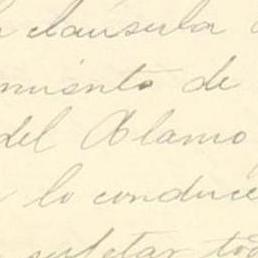 clausula
miento de
del Alamo
lo conduce
sujetar to